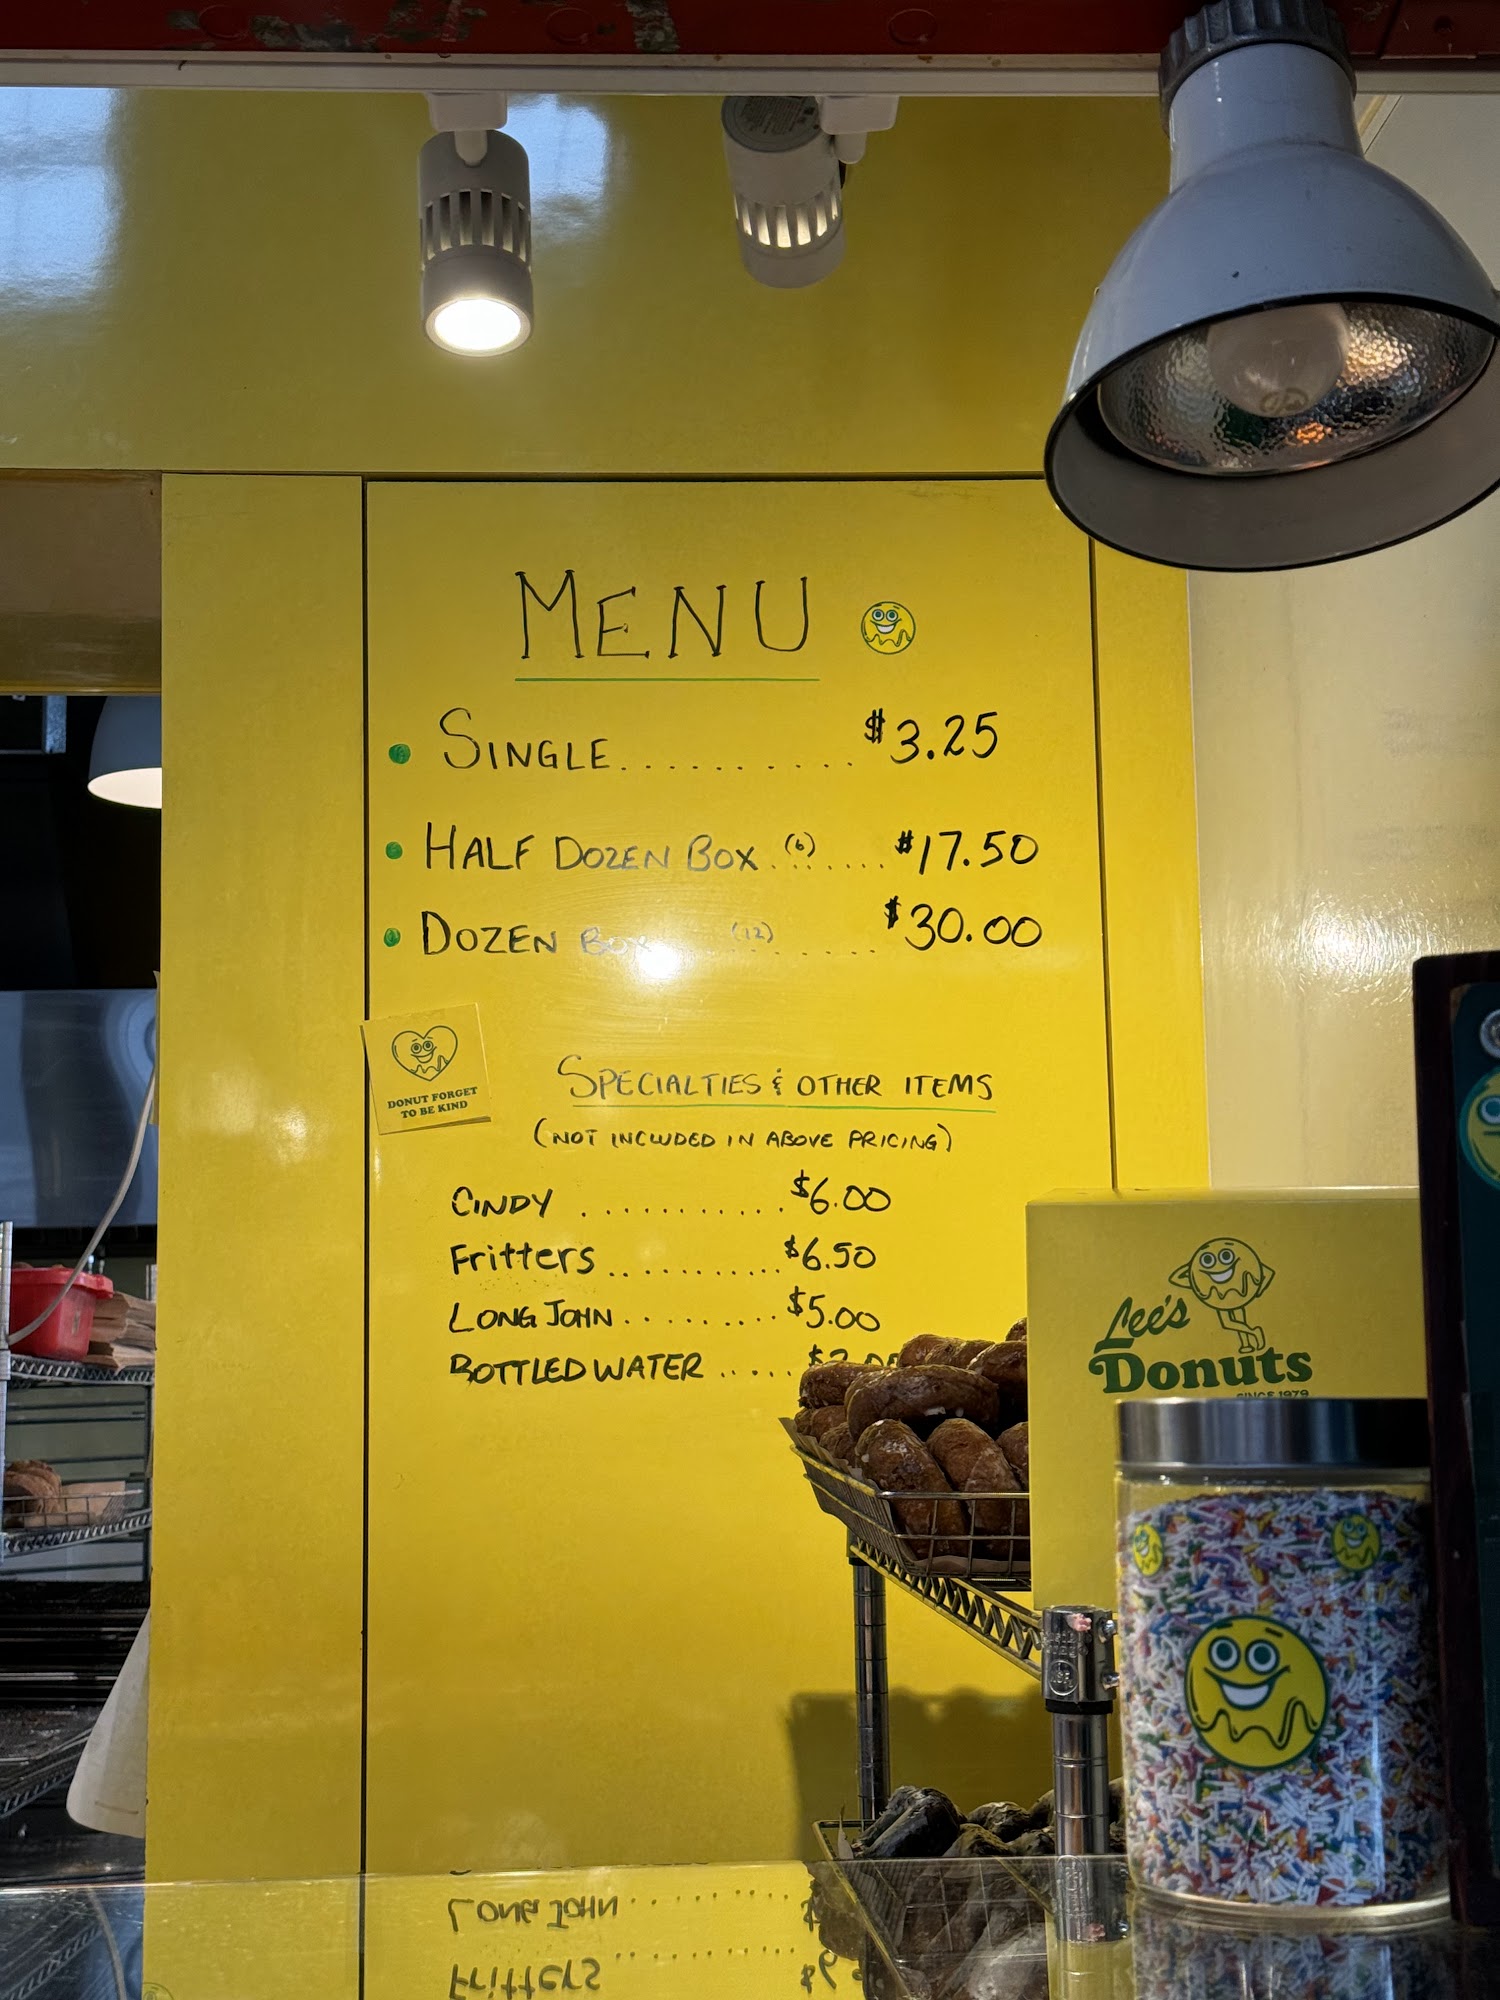 MENU
• SINGLE.......... $3.25
• HALF DOZEN BOX (6) ...... $17.50
• DOZEN BOX (12) ...... $30.00
DONUT FORGET
TO BE KIND
SPECIALTIES & OTHER ITEMS
(NOT INCLUDED IN ABOVE PRICING)
CINDY ........... $6.00
Fritters ........... $6.50
LONG JOHN ......... $5.00
BOTTLED WATER .....
Lee's
Donuts
SINCE 1979
LONG JOHN
Fritters